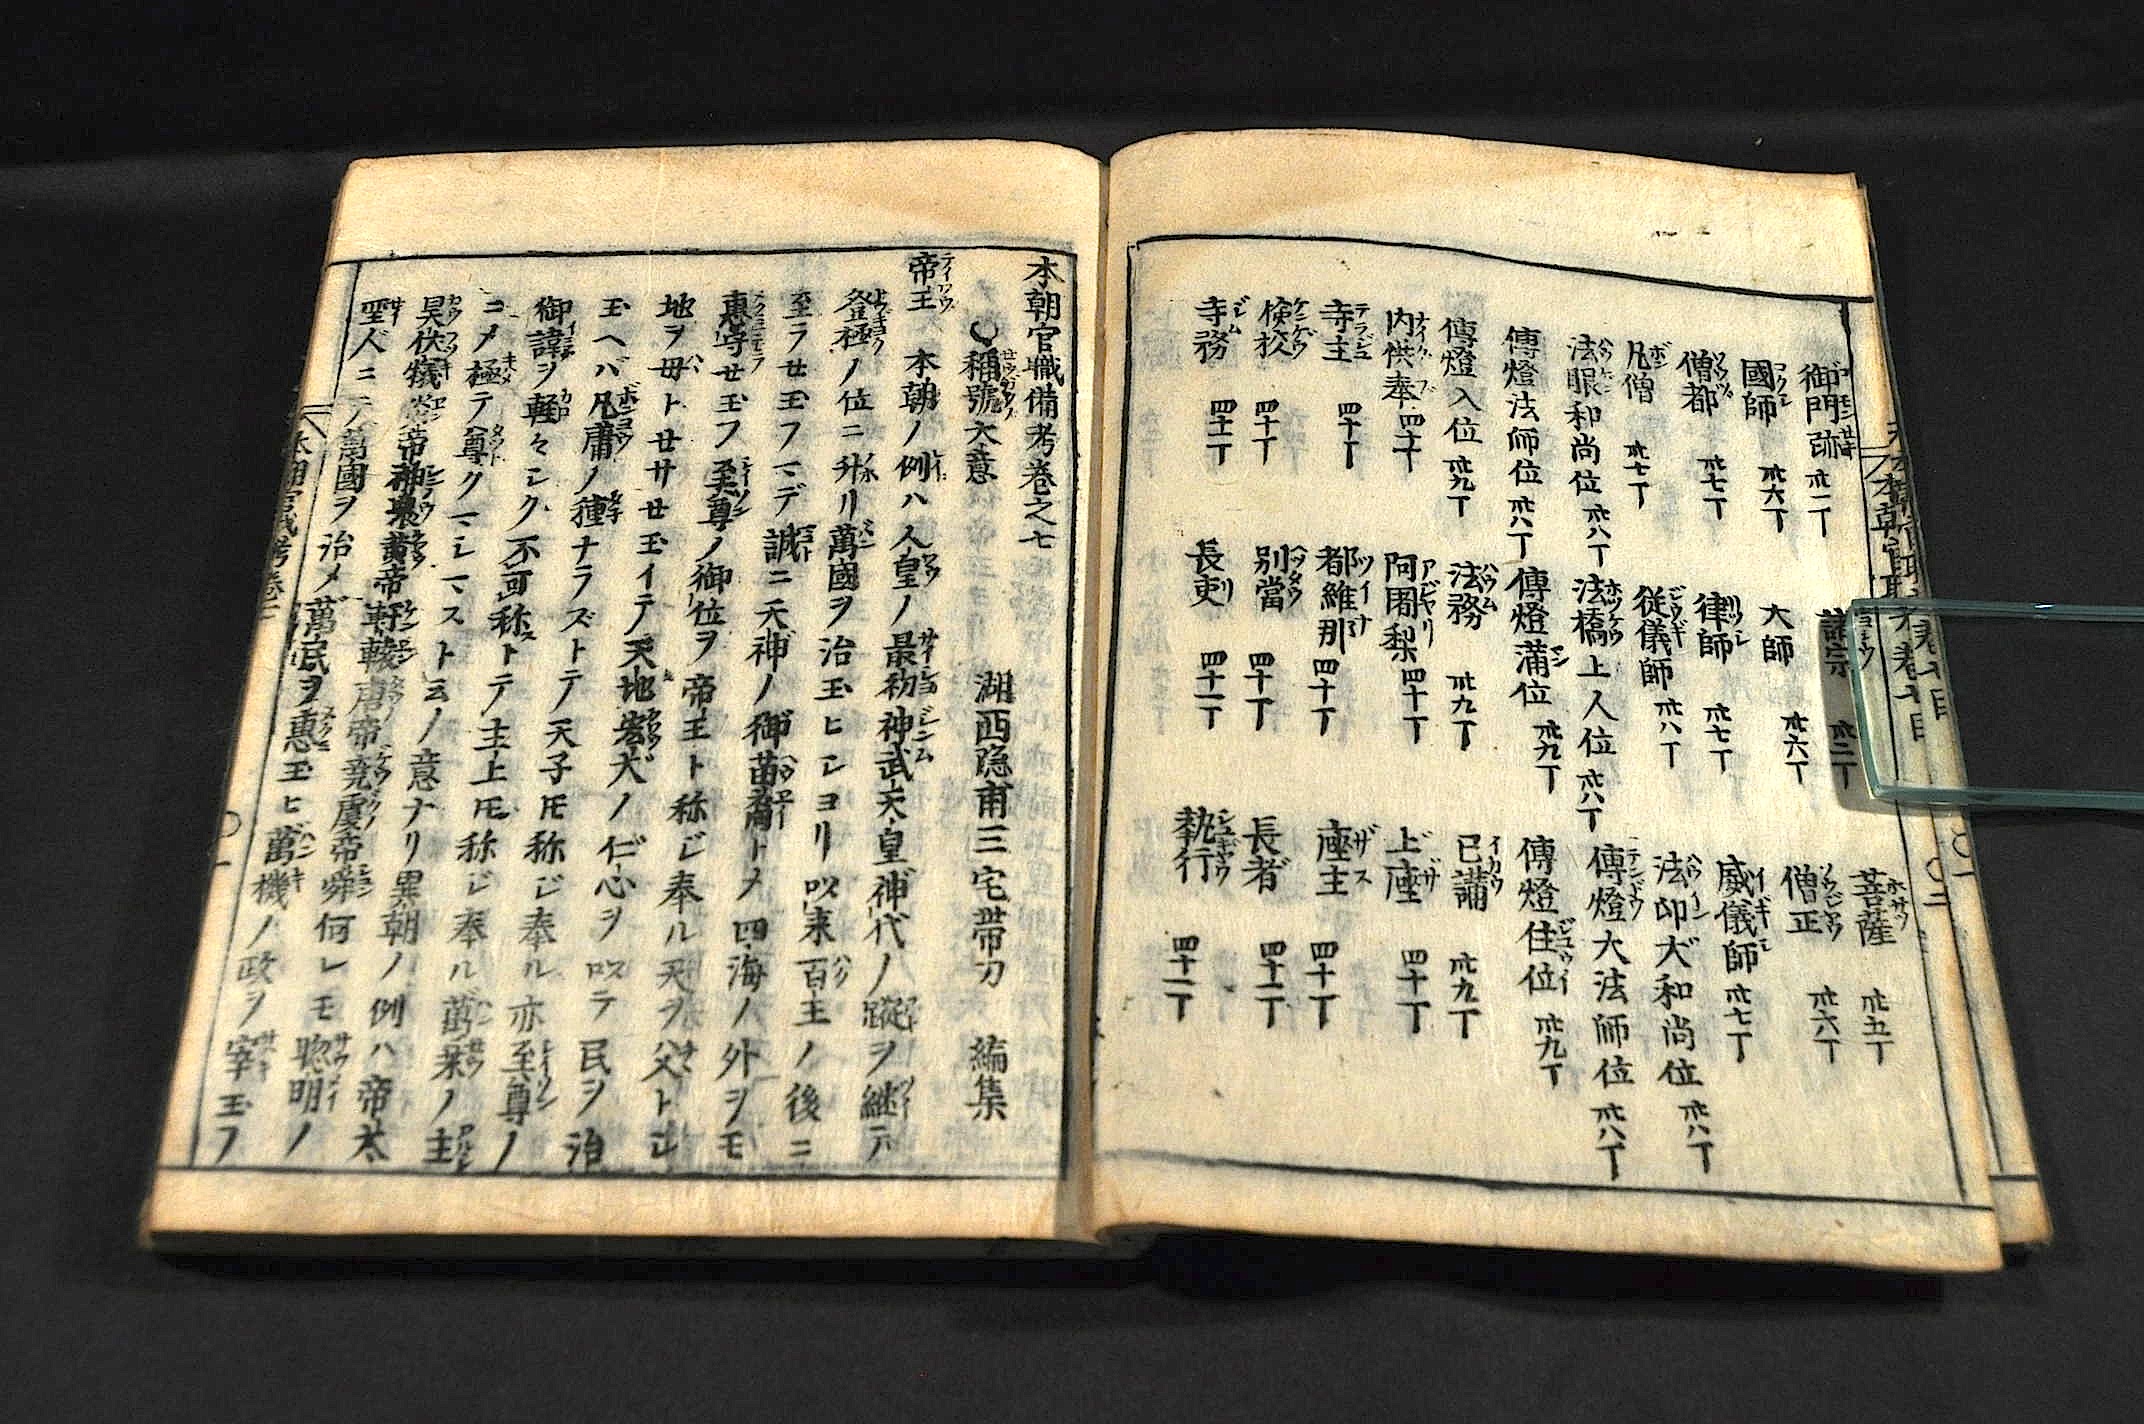 御門跡 卅一丁 諸宗 卅二丁 菩薩 卅五丁
國師 卅六丁 大師 卅六丁 僧正 卅六丁
僧都 卅七丁 律師 卅七丁 威儀師 卅七丁
凡僧 卅七丁 従儀師 卅八丁 法印大和尚位 卅八丁
法眼和尚位 卅八丁 法橋上人位 卅八丁 傳燈大法師位 卅八丁
傳燈法師位 卅八丁 傳燈満位 卅九丁 傳燈住位 卅九丁
傳燈入位 卅九丁 法務 卅九丁 已講 卅九丁
内供奉 四十丁 阿闍梨 四十丁 上座 四十丁
寺主 四十丁 都維那 四十丁 座主 四十丁
検校 四十丁 別當 四十丁 長者 四十一丁
寺務 四十一丁 長吏 四十一丁 執行 四十一丁
本朝官職備考巻之七
稱號大意 湖西隠甫三宅帯刀 編集
帝王 本朝ノ例ハ人皇ノ最初神武天皇神代ノ蹤ヲ継テ
登極ノ位ニ升リ萬國ヲ治玉ヒシヨリ以来百王ノ後ニ
至ラせ玉フマデ誠ニ天神ノ御苗裔トメ四海ノ外ヲモ
恵守せ玉フ至尊ノ御位ヲ帝王ト称シ奉ル天ヲ父トシ
地ヲ母トせサせ玉イテ天地宏大ノ仁心ヲ以テ民ヲ治
玉ヘバ凡庸ノ種ナラズトテ天子トモ称シ奉ル亦至尊ノ
御諱ヲ軽々シク不可称トテ主上トモ称シ奉ル萬乗ノ主
ニメ極テ尊クマシマスト云ノ意ナリ異朝ノ例ハ帝太
昊伏犧 帝神農黄帝軒轅唐帝堯虞帝舜何レモ聰明ノ
聖人ニテ萬國ヲ治メ萬民ヲ恵玉ヒ萬機ノ政ヲ宰玉フ